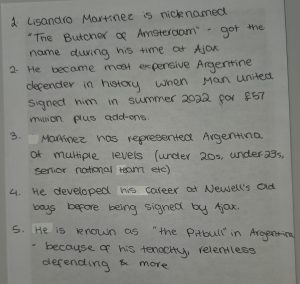 1. Lisandro Martinez is nicknamed
"The Butcher of Amsterdam" - got the
name during his time at Ajax
2. He became most expensive Argentine
defender in history when Man united
signed him in summer 2022 for £57
million plus add-ons.
3. Martinez has represented Argentina
at multiple levels (under 20s, under 23s,
senior national team etc)
4. He developed his career at Newell's Old
boys before being signed by Ajax.
5. He is known as "the Pitbull" in Argentina
- because of his tenacity, relentless
defending & more